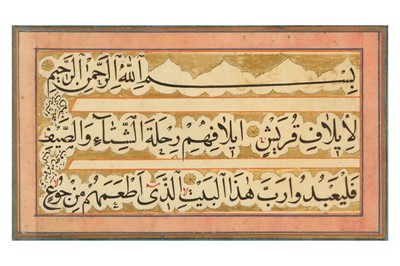 بِسْمِ اللهِ الرَّحْمٰنِ الرَّحِيْمِ
لِإِيلَافِ قُرَيْشٍ إِيلَافِهِمْ رِحْلَةَ الشِّتَاءِ وَالصَّيْفِ
فَلْيَعْبُدُوا رَبَّ هَذَا الْبَيْتِ الَّذِي أَطْعَمَهُمْ مِنْ جُوعٍ